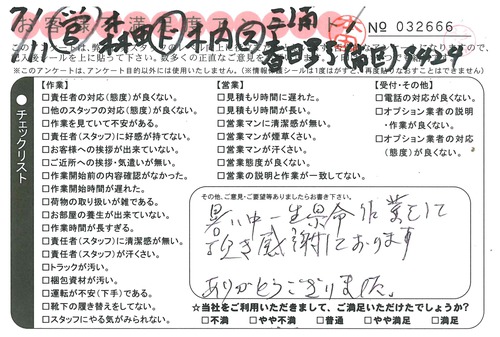 お客様満足度アンケート
No 032666
※このアンケートは、アンケート目的以外には使用いたしません。
チェックリスト
【作業】
□責任者の対応(態度)が良くない。
□他のスタッフの対応(態度)が良くない。
□作業を見ていて不安がある。
□責任者(スタッフ)に好感が持てない。
□お客様への挨拶が出来ていない。
□ご近所への挨拶・気遣いが無い。
□作業開始前の内容確認がなかった。
□作業開始時間が遅れた。
□荷物の取り扱いが雑である。
□お部屋の養生が出来ていない。
□作業時間が長すぎる。
□責任者(スタッフ)に清潔感が無い。
□責任者(スタッフ)が汗くさい。
□トラックが汚い。
□梱包資材が汚い。
□運転が不安(下手)である。
□靴下の履き替えをしてない。
□スタッフにやる気がみられない。
【営業】
□見積もり時間に遅れた。
□見積もり時間が長い。
□営業マンに清潔感が無い。
□営業マンが煙草くさい。
□営業マンが汗くさい。
□営業態度が良くない。
□営業の説明と作業が一致してない。
【受付・その他】
□電話の対応が良くない。
□オプション業者の説明・作業が良くない。
□オプション業者の対応(態度)が良くない。
その他、ご意見・ご要望等ありましたらお書き下さい。
暑い中一生県命作業をして
頂き感謝しております
ありがとうございました。
☆当社をご利用いただきまして、ご満足いただけたでしょうか?
□不満 □やや不満 □普通 □やや満足 □満足